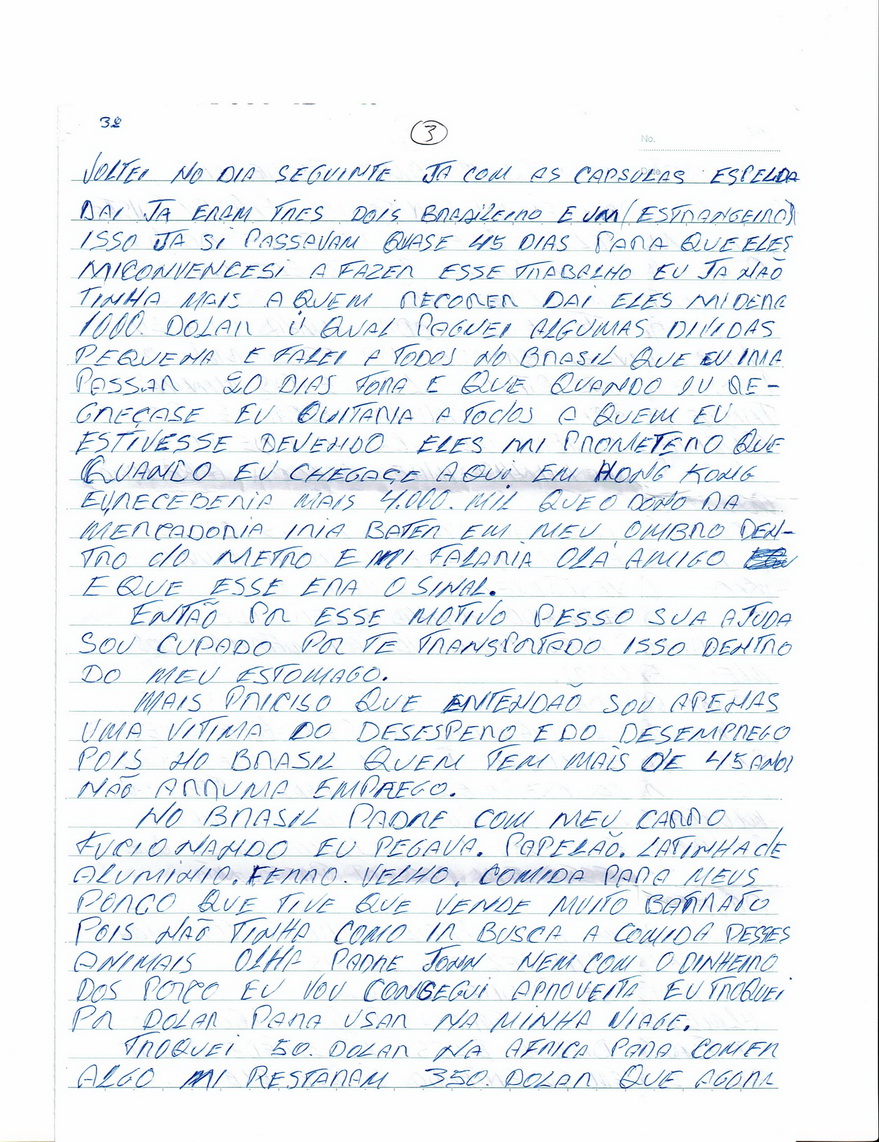 3ª
3
No.
VOLTEI NO DIA SEGUINTE JA COM AS CAPSULAS ESPELDA
DAI JA ERAM TRES DOIS BRAZILEIRO E UM (ESTRANGEIRO)
ISSO JA SI PASSAVAM QUASE 45 DIAS PARA QUE ELES
MICONVENCESI A FAZER ESSE TRABALHO EU JA NÃO
TINHA MAIS A QUEM RECORER DAI ELES MIDERA
1000. DOLAR U QUAL PAGUEI ALGUMAS DIVIDAS
PEQUENA E FALEI A TODOS NO BRASIL QUE EU IRIA
PASSAR 20 DIAS FORA E QUE QUANDO IU RE-
GREÇASE EU QUITARIA A TODOS A QUEM EU
ESTIVESSE DEVENDO ELES MI PROMETERO QUE
QUANDO EU CHEGAÇE AQUI EM HONG KONG
EU RECEBERIA MAIS 4.000. MIL QUE O DONO DA
MERCADORIA IRIA BATER EM MEU OMBRO DEN-
TRO do METRO E MI FALARIA OLÁ AMIGO
E QUE ESSE ERA O SINAL.
ENTÃO POR ESSE MOTIVO PESSO SUA AJUDA
SOU CUPADO POR TE TRANSPORTADO ISSO DENTRO
DO MEU ESTOMAGO.
MAIS PRICISO QUE ENTENDAÕ SOU APENAS
UMA VITIMA DO DESESPERO E DO DESEMPREGO
POIS NO BRASIL QUEM TEM MAIS DE 45 ANOS
NÃO ARRUMA EMPREEGO.
NO BRASIL PADRE COM MEU CARRO
FUCIONANDO EU PEGAVA. PAPELÃO. LATINHA de
ALUMINIO. FERRO. VELHO. COMIDA PARA MEUS
PORCO QUE TIVE QUE VENDE MUITO BARRATO
POIS NÃO TINHA COMO IR BUSCA A COMIDA DESSES
ANIMAIS OLHA PADRE JOHN NEM COM O DINHEIRO
DOS PORCO EU VOU CONSEGUI APROVEITA EU TROQUEI
POR DOLAR PARA USAR NA MINHA VIAGE.
TROQUEI 50. DOLAR NA AFRICA PARA COMER
ALGO MI RESTARAM 350. DOLAR QUE AGORA